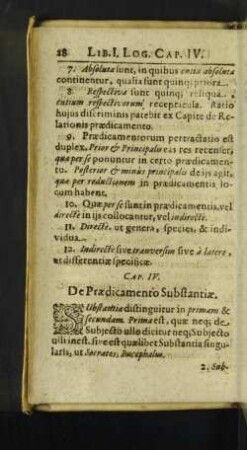 28 LIB. I. LOG. CAP. IV.
7. Absoluta sunt, in quibus entia absoluta
continentur, qualia sunt quinq; priora.
8. Respectiva sunt quinq; reliqua,
entium respectivorum recepticula. Ratio
hujus discriminis patebit ex Capite de Re-
lationis prædicamento.
9. Prædicamentorum pertractatio est
duplex, Prior & Principalis eas res recenset,
quæ per se ponuntur in certo prædicamen-
to. Posterior & minus principalis de ijs agit,
quæ per reductionem in prædicamentis lo-
cum habent.
10. Quæ per se sunt in prædicamentis, vel
directè in ijs collocantur, vel indirectè.
11. Directè, ut genera, species, & in-
dividua.
12. Indirectè sive transversim sive à latere,
ut differentiæ specificæ.
CAP. IV.
De Prædicamento Substantiæ.
SUbstantia distinguitur in primam &
secundam. Prima est, quæ neq; de
Subjecto ullo dicitur neq; Subjecto
ulli inest. sive est quælibet Substantia singu-
laris, ut Socrates, Bucephalus.
2. Sub-